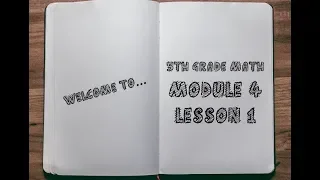 WELCOME TO...
5TH GRADE MATH
MODULE 4
LESSON 1